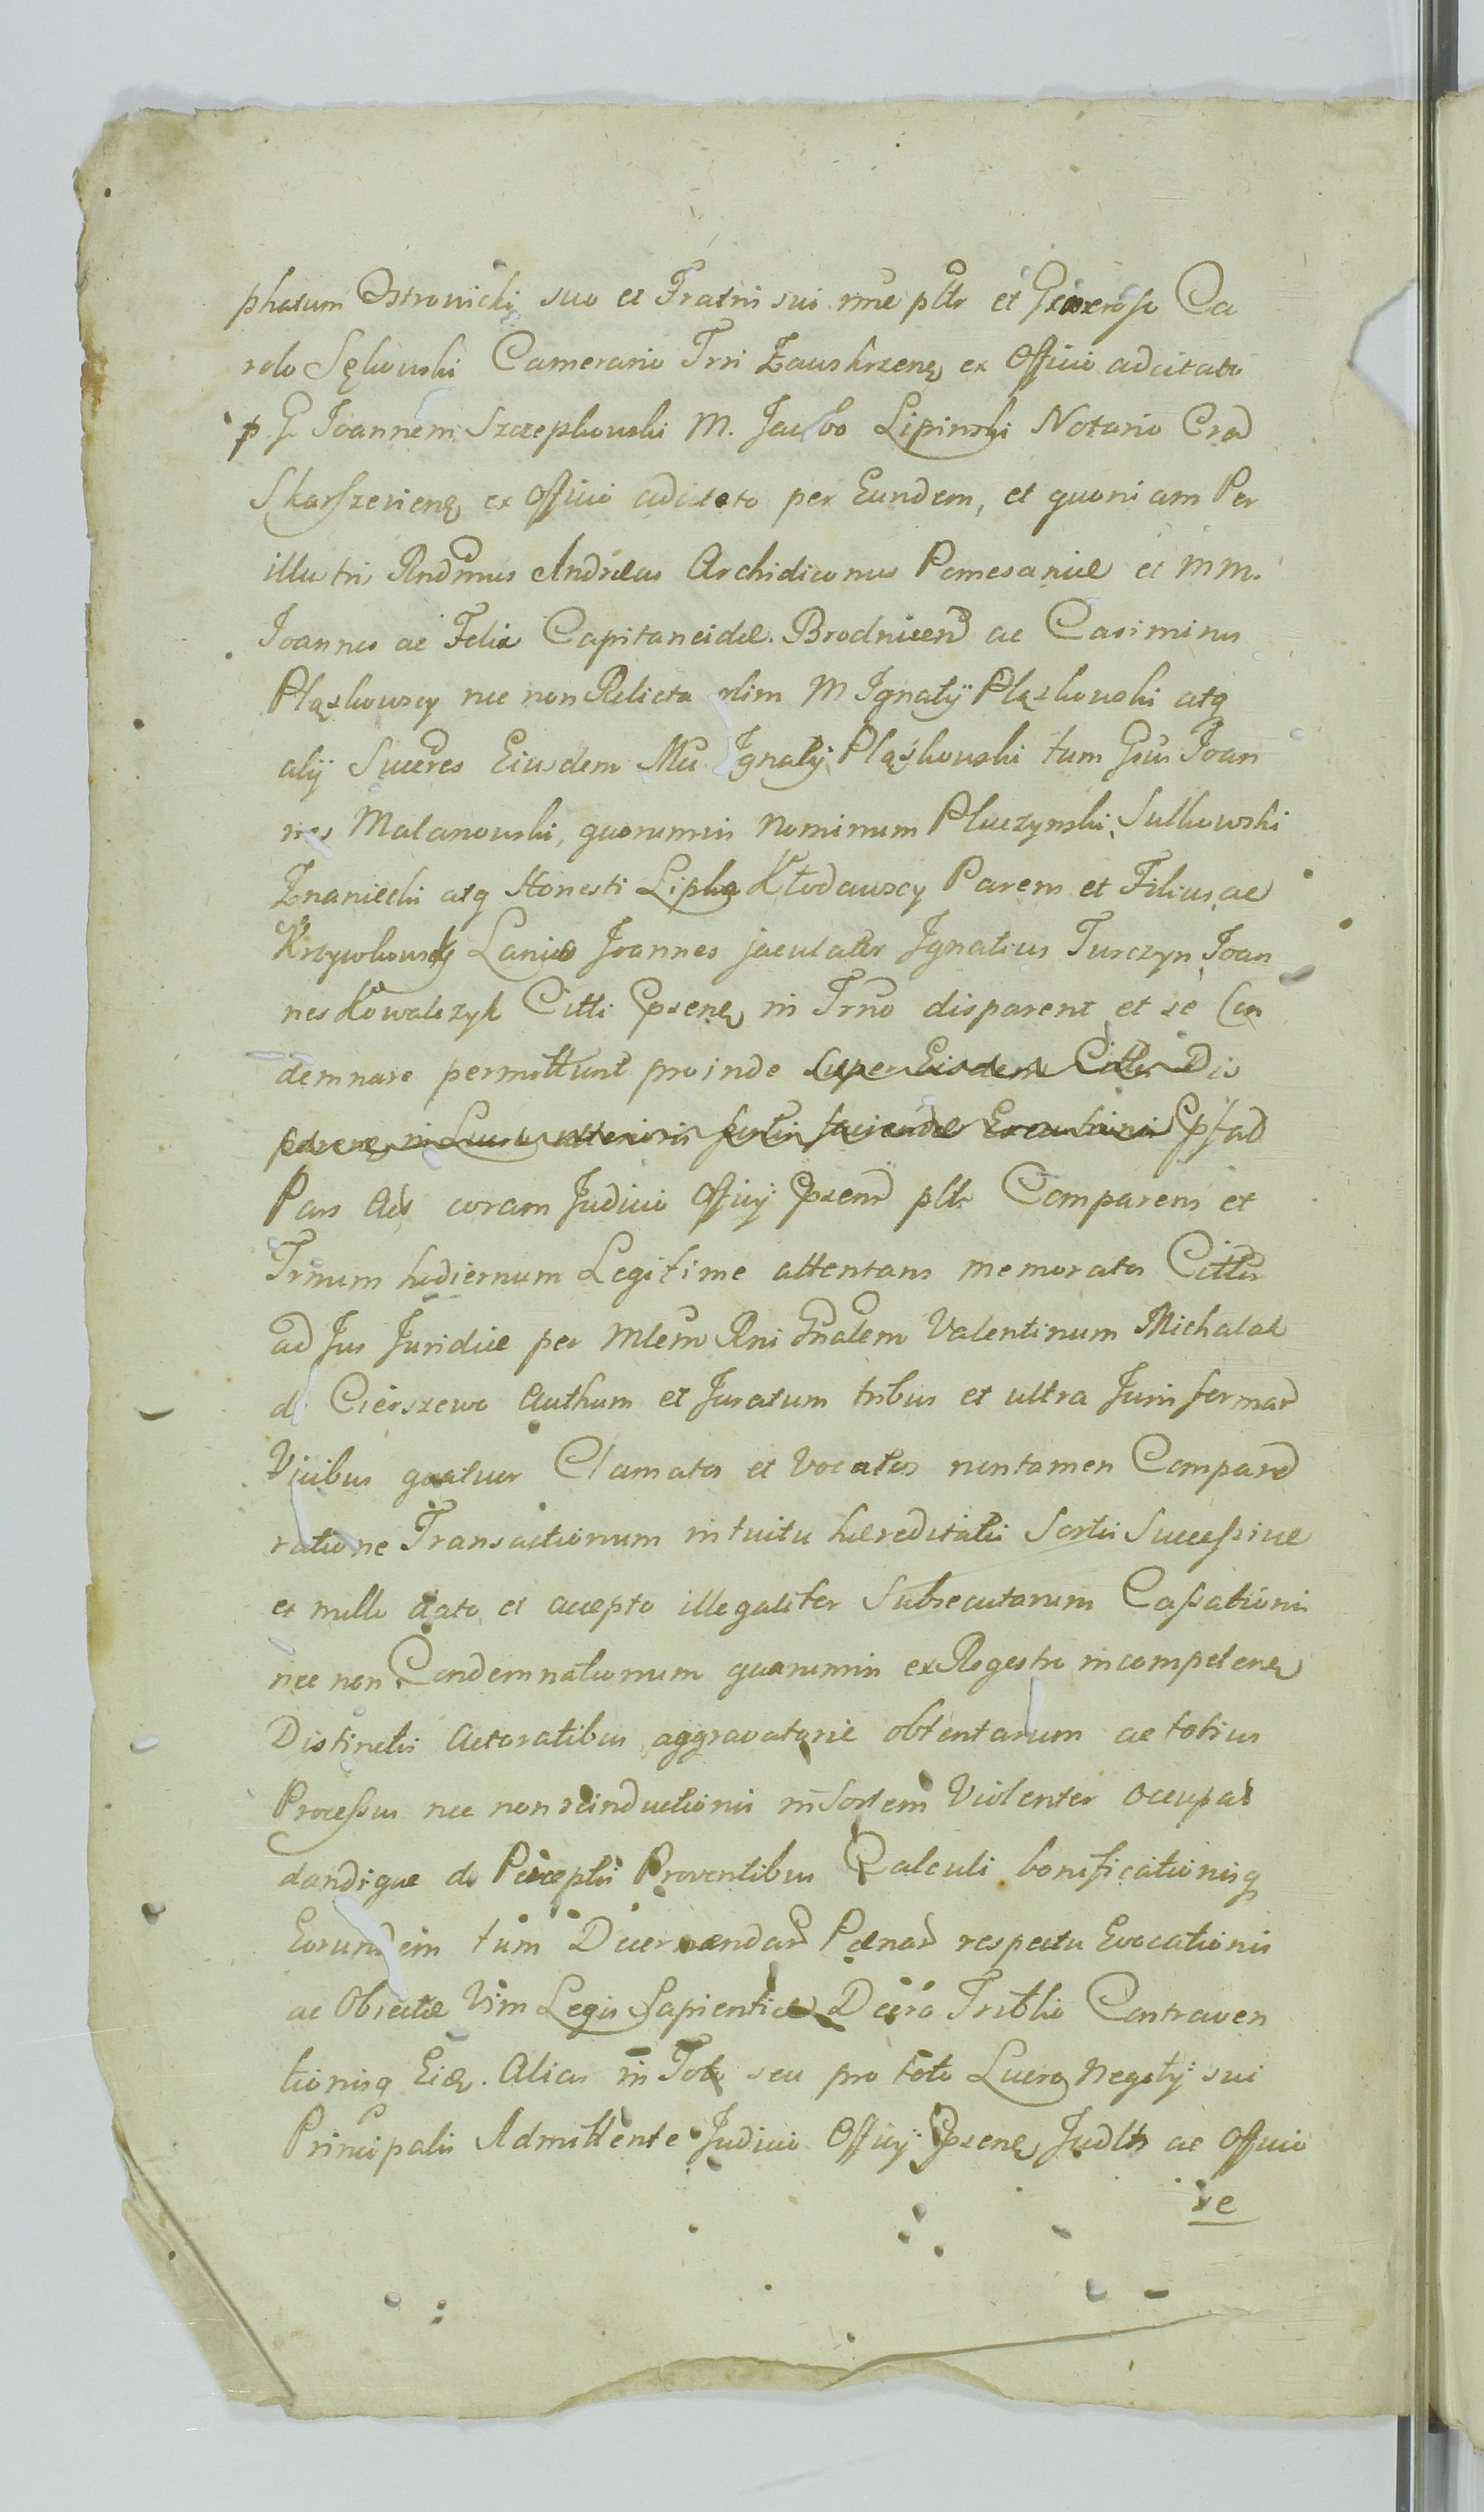 phatum Ostrowicki suo et Fratris sui nne pltr et Generoso Ca
rolo Sękowski Camerario Trri Zauskrzenę ex Officio adcitato
p G Joannem Szczepkowski M. Jacobo Lipinski Notario Crad
Skarszevienę ex officio adcitato per Eundem, et quoniam Per
illustris Rndmus Andreas Archidiconus Pomesaniæ et MM.
Joannes ac Felix Capitaneidæ Brodnicens ac Casimirus
Pląskowscy nec non Relicta olim M Ignatÿ Pląskowski atq
alÿ Succres Eiusdem Mci Ignatÿ Pląskowski tum Gsus Joan
nes Malanowski, quorumvis Nominum Pluczynski, Sulkowski
Znaniecki atq Honesti Lipka Kłodawscy Parens et Filius, ac
Krzywkowski Lanio Joannes jaculator Ignatius Turczyn, Joan
nes Kowalczyk Citti in Trno disparent et se Con
demnare permittunt proinde super Eisdem Cittis Dis
in Lucro ulterioris fortis faciendæ Executionis
Pars coram Judicio Officÿ pltr Comparens et
Trnum hodiernum Legitime attentans memoratos Cittos
ad Jus Juridice per Mlem Rni Gnalem Valentinum Michalak
de Cierszewo Authum et Juratum tribus et ultra Juris formad
Vicibus quatuor Clamatos et Vocatos nontamen Compard
ratione Transactionum intuitu hæreditatis Sortis Successivæ
et nullo dato et accepto illegaliter Subsecutarum Cassationis
nec non Condemnationum quarumvis ex Regestro incompetenę
Distinctis Actoratibus aggravatorie obtentarum ac totius
Processus nec non reinductionis in Sortem Violenter occupad
dandique de Perceptis Proventibus Calculi bonificationisq
Eorundem tum Decernendard Pænard respectu Evocationis
ac Obiectæ Vim Legis Sapientis Dccro Triblio Contraven
tionisq Eidę. Alias in Toto seu pro toto Lucro Negotÿ sui
Principalis Admittente Judicio Officÿ Judltr ac Officio
se